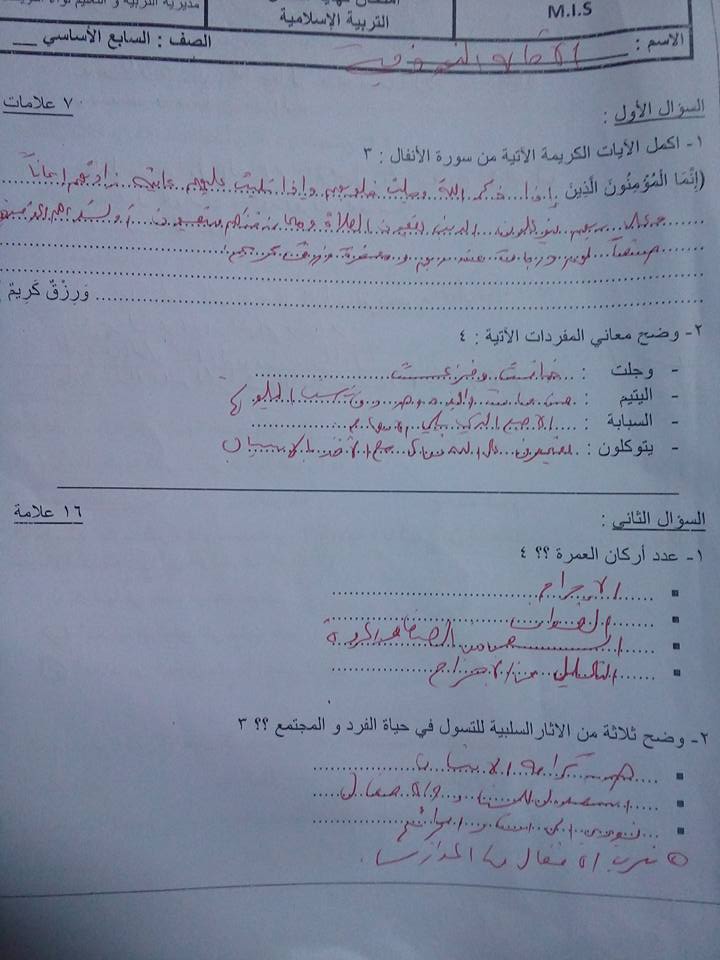 مديرية التربية و التعليم لواء
M.I.S
التربية الإسلامية
الاسم :
الصف : السابع الأساسي
السؤال الأول :
٧ علامات
١- اكمل الآيات الكريمة الآتية من سورة الأنفال : ٣
(إِنَّمَا الْمُؤْمِنُونَ الَّذِينَ إذا ذكر الله وجلت قلوبهم وإذا تليت عليهم آياته زادتهم إيماناً
وعلى ربهم يتوكلون الذين يقيمون الصلاة ومما رزقناهم ينفقون أولئك هم المؤمنون
حقاً لهم درجات عند ربهم ومغفرة ورزق كريم
وَرِزْقٌ كَرِيمٌ
٢- وضح معاني المفردات الآتية : ٤
- وجلت : خافت وفزعت
- اليتيم : من مات والده وهو دون سن البلوغ
- السبابة : الاصبع التي تلي الابهام
- يتوكلون : يعتمدون على الله مع الأخذ بالاسباب
السؤال الثاني :
١٦ علامة
١- عدد أركان العمرة ؟؟ ٤
الاحرام
الطواف
السعي بين الصفا والمروة
التحلل من الاحرام
٢- وضح ثلاثة من الاثار السلبية للتسول في حياة الفرد و المجتمع ؟؟ ٣
كرامة الانسان